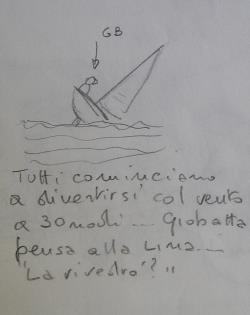 GB
Tutti cominciano
a divertirsi col vento
a 30 nodi... Giobatta
pensa alla Lina...
"La rivedrò"?"